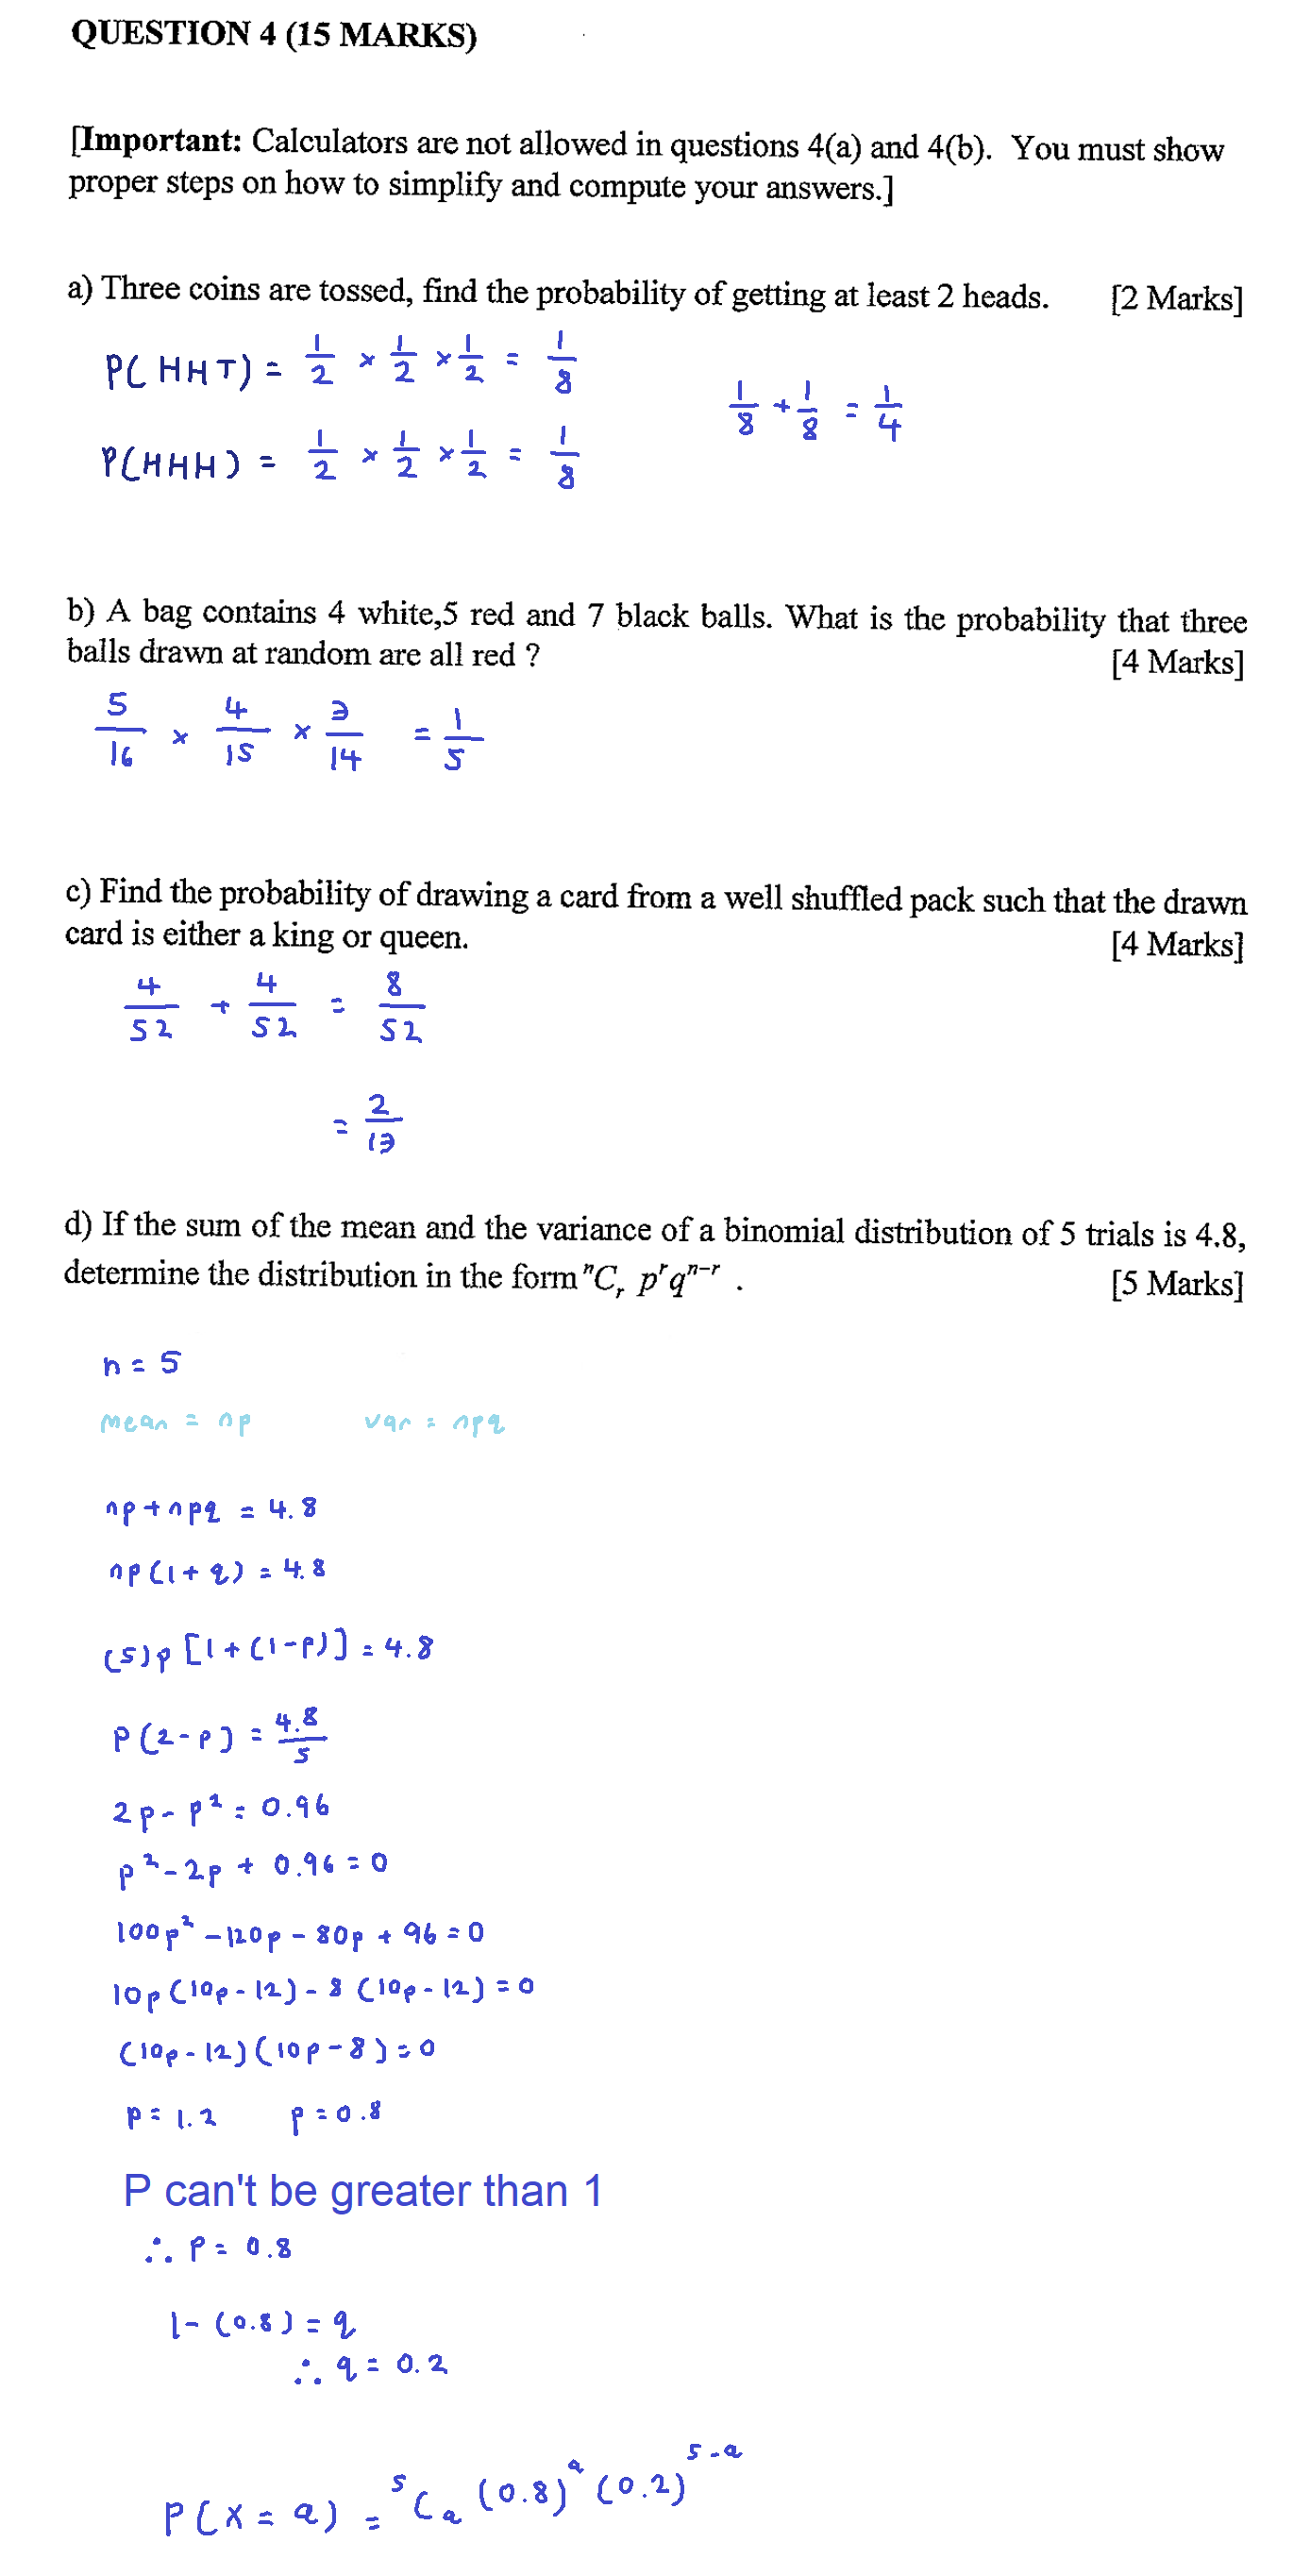 QUESTION 4 (15 MARKS)
[Important: Calculators are not allowed in questions 4(a) and 4(b). You must show
proper steps on how to simplify and compute your answers.]
a) Three coins are tossed, find the probability of getting at least 2 heads. [2 Marks]
P(HHT) = 1/2 × 1/2 × 1/2 = 1/8
1/8 + 1/8 = 1/4
P(HHH) = 1/2 × 1/2 × 1/2 = 1/8
b) A bag contains 4 white,5 red and 7 black balls. What is the probability that three
balls drawn at random are all red ? [4 Marks]
5/16 × 4/15 × 3/14 = 1/5
c) Find the probability of drawing a card from a well shuffled pack such that the drawn
card is either a king or queen. [4 Marks]
4/52 + 4/52 = 8/52
= 2/13
d) If the sum of the mean and the variance of a binomial distribution of 5 trials is 4.8,
determine the distribution in the form ⁿCᵣ pʳqⁿ⁻ʳ . [5 Marks]
n = 5
mean = np var = npq
np + npq = 4.8
np(1 + q) = 4.8
(5)p [1 + (1-p)] = 4.8
P(2-p) = 4.8/5
2p - p² = 0.96
p² - 2p + 0.96 = 0
100p² - 120p - 80p + 96 = 0
10p(10p - 12) - 8(10p - 12) = 0
(10p - 12)(10p - 8) = 0
p = 1.2 p = 0.8
P can't be greater than 1
∴ P = 0.8
1 - (0.8) = q
∴ q = 0.2
P(X = a) = ⁵Cₐ (0.8)ᵃ (0.2)⁵⁻ᵃ